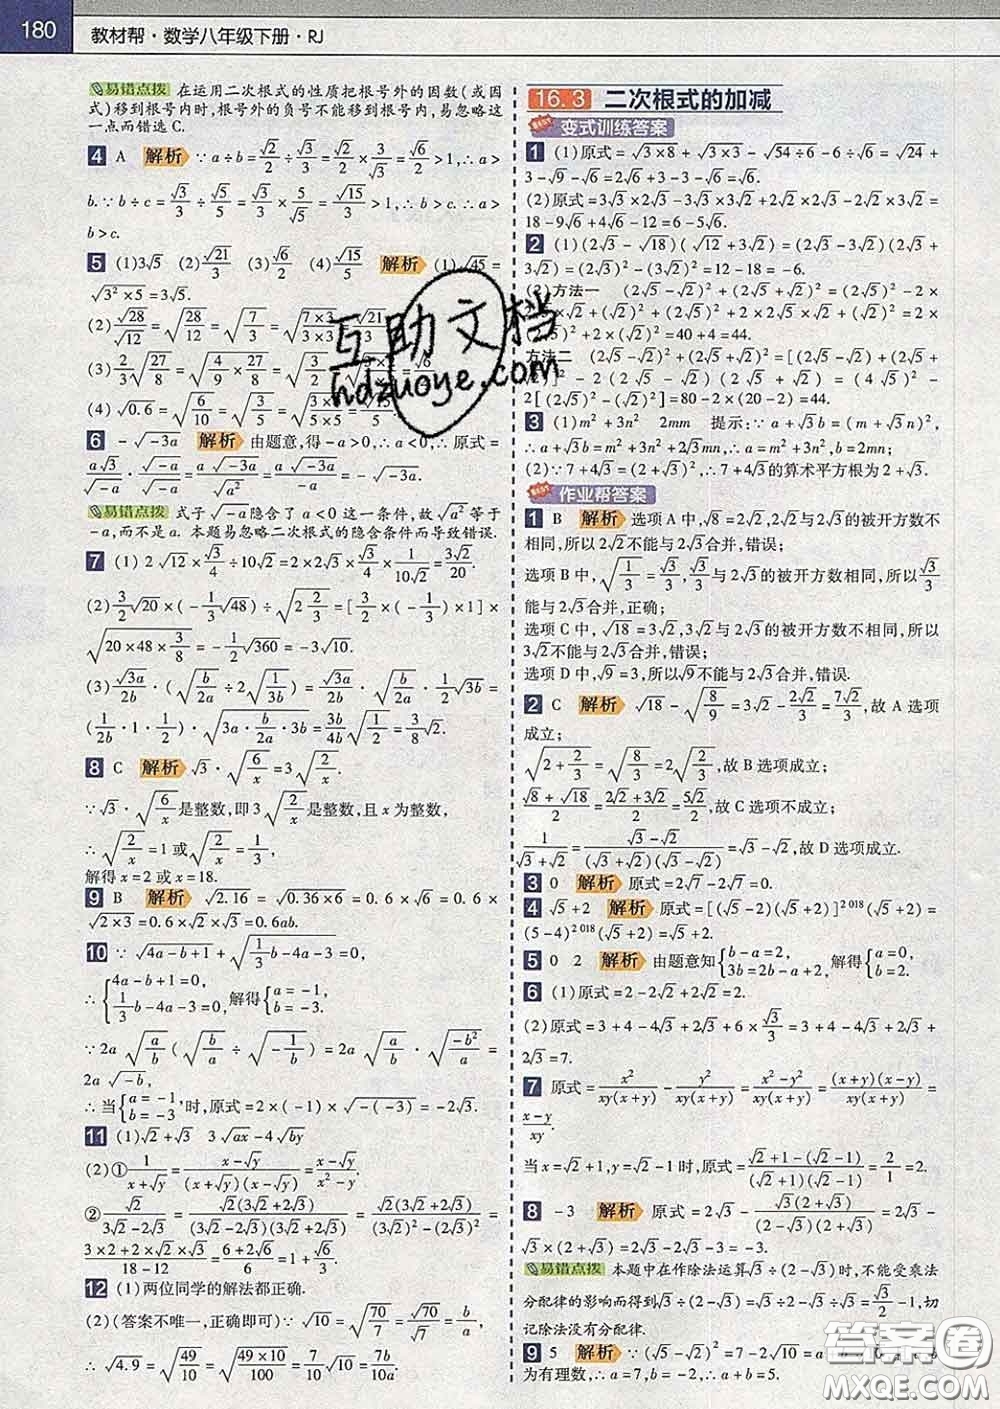 180 教材帮·数学八年级下册·RJ
易错点拨 在运用二次根式的性质把根号外的因数(或因
式)移到根号内时,根号外的负号不能移到根号内,易忽略这
一点而错选 C.
4 A 解析 ∵a÷b=√2/2÷√3/3=√2/2×3/√3=√6/2>1,∴a>
b.∵b÷c=√3/3÷√5/5=√3/3×5/√5=√15/3>1,∴b>c.∴a>
b>c.
5 (1)3√5 (2)√21/3 (3)√6/2 (4)√15/5 解析 (1)√45=
√(3²×5)=3√5.
6 -√(-3a) 解析 由题意,得-a>0,∴a<0,∴原式=
a√3/√(-a)·√(-a)/√(-a)=a√(-3a)/√(a²)=a√(-3a)/(-a)=-√(-3a).
易错点拨 式子√(-a)隐含了 a<0 这一条件,故√(a²)等于
-a,而不是 a.本题易忽略二次根式的隐含条件而导致错误.
7 (1)2√12×√3/4÷10√2=2×2√3×√3/4×1/(10√2)=3√2/20.
(2)3/2√20×(-1/3√48)÷√(2 2/3)=[3/2×(-1/3)×1]×
√(20×48×3/8)=-1/2√360=-3√10.
(3)√(3a)/2b·(√(b/2a)÷2√(1/3b))=√(3a)/2b·√(b/2a)·1/2√(3b)=
(1/2b·1·1/2)·√(3a·b/2a·3b)=3b/4b√(1/2)=3/8√2.
8 C 解析 √3·√(6/x)=3√(2/x).
∵√3·√(6/x)是整数,即3√(2/x)是整数,且 x 为整数,
∴√(2/x)=1 或√(2/x)=1/3,
解得 x=2 或 x=18.
9 B 解析 √2.16=√(0.36×6)=0.6×√6=0.6×
√(2×3)=0.6×√2×√3=0.6ab.
10 ∵√(4a-b+1)+√(1/3b-4a-3)=0,
∴{4a-b+1=0, 1/3b-4a-3=0, 解得{a=-1, b=-3.
∵2a√(a/b)(√(b/a)÷√(-1/b))=2a√(a/b)·√(-b²/a)=
2a√(-b),
∴当{a=-1, b=-3,时,原式=2×(-1)×√(-(-3))=-2√3.
11 (1)√2+√3 3√(ax)-4√(by)
(2)①1/(x+√y)=(x-√y)/((x+√y)(x-√y))=(x-√y)/(x²-y).
②√2/(3√2-2√3)=√2(3√2+2√3)/((3√2-2√3)(3√2+2√3))=√2(3√2+2√3)/((3√2)²-(2√3)²)=
(3×2+2×√2×√3)/(18-12)=(6+2√6)/6=1+√6/3.
12 (1)两位同学的解法都正确.
(2)(答案不唯一,正确即可)∵√10=√(70/7)=√70/√7=b/a,
∴√4.9=√(49/10)=√(49×10/100)=7√10/10=7b/10a.
16.3 二次根式的加减
变式训练答案
1 (1)原式=√(3×8)+√(3×3)-√(54÷6)-6÷√6=√24+
3-√9-√6=2√6+3-3-√6=√6.
(2)原式=3√3×2√3-3√3×√2+2√2×2√3-2√2×√2=
18-9√6+4√6-4... 
2 (1)(2√3-√18)(√12+3√2)=(2√3-3√2)(2√3+
3√2)=(2√3)²-(3√2)²=12-18=-6.
(2)方法一 (2√5-√2)²+(2√5+√2)²=(2√5)²-2×
方法二 (2√5-√2)²+(2√5+√2)²=[(2√5-√2)+(2√5+
√2)]²-2(2√5-√2)(2√5+√2)=(4√5)²-
2[(2√5)²-(√2)²]=80-2×(20-2)=44.
3 (1)m²+3n² 2mn 提示:∵a+√3b=(m+√3n)²,
∴a+√3b=m²+3n²+2√3mn,∴a=m²+3n²,b=2mn;
(2)∵7+4√3=(2+√3)²,∴7+4√3的算术平方根为2+√3.
作业帮答案
1 B 解析 选项 A 中,√8=2√2,2√2与2√3的被开方数不
相同,所以2√2不能与2√3合并,错误;
选项 B 中,√(1/3)=√3/3,√3/3与2√3的被开方数相同,所以√3/3
能与2√3合并,正确;
选项 C 中,√18=3√2,3√2与2√3的被开方数不相同,所以
3√2不能与2√3合并,错误;
选项 D 中,√9=3,所以√9不能与2√3合并,错误.
2 C 解析 √18-√(8/9)=3√2-2√2/3=7√2/3,故 A 选项
成立;
√(2+2/3)=√(8/3)=2√(2/3),故 B 选项成立;
(√8+√18)/2=(2√2+3√2)/2=5√2/2,故 C 选项不成立;
1/(√3+√2)=(√3-√2)/((√3+√2)(√3-√2))=√3-√2,故 D 选项成立.
3 0 解析 原式=2√7-2√7=0.
4 √5+2 解析 原式=[(√5-2)(√5+2)]²⁰¹⁸(√5+2)=
(5-4)²⁰¹⁸(√5+2)=√5+2.
5 0 2 解析 由题意知{b-a=2, 3b=2b-a+2, 解得{a=0, b=2.
6 (1)原式=2-2√2+2√2=2.
(2)原式=3+4-4√3+2√3+6×√3/3=3+4-4√3+2√3+
2√3=7.
7 原式=x²/(xy(x+y))-y²/(xy(x+y))=(x²-y²)/(xy(x+y))=(x+y)(x-y)/(xy(x+y))=
(x-y)/xy.
当 x=√2+1,y=√2-1时,原式=(√2+1-(√2-1))/((√2+1)(√2-1))=2/1=2.
8 -3 解析 原式=2√3-√3(2+√3)/((2-√3)(2+√3))=2√3-
2√3-3=-3.
易错点拨 本题中在作除法运算√3÷(2-√3)时,不能受乘法
分配律的影响而得到√3÷(2-√3)=√3÷2-√3÷√3=√3/2-1,切
记除法没有分配律.
9 5 解析 ∵(√5-√2)²=7-2√10=a+b√10,
为有理数,∴a=7,b=-2,∴a+b=5.
互助文档
hdzuoye.com
答案圈
MXQE.COM